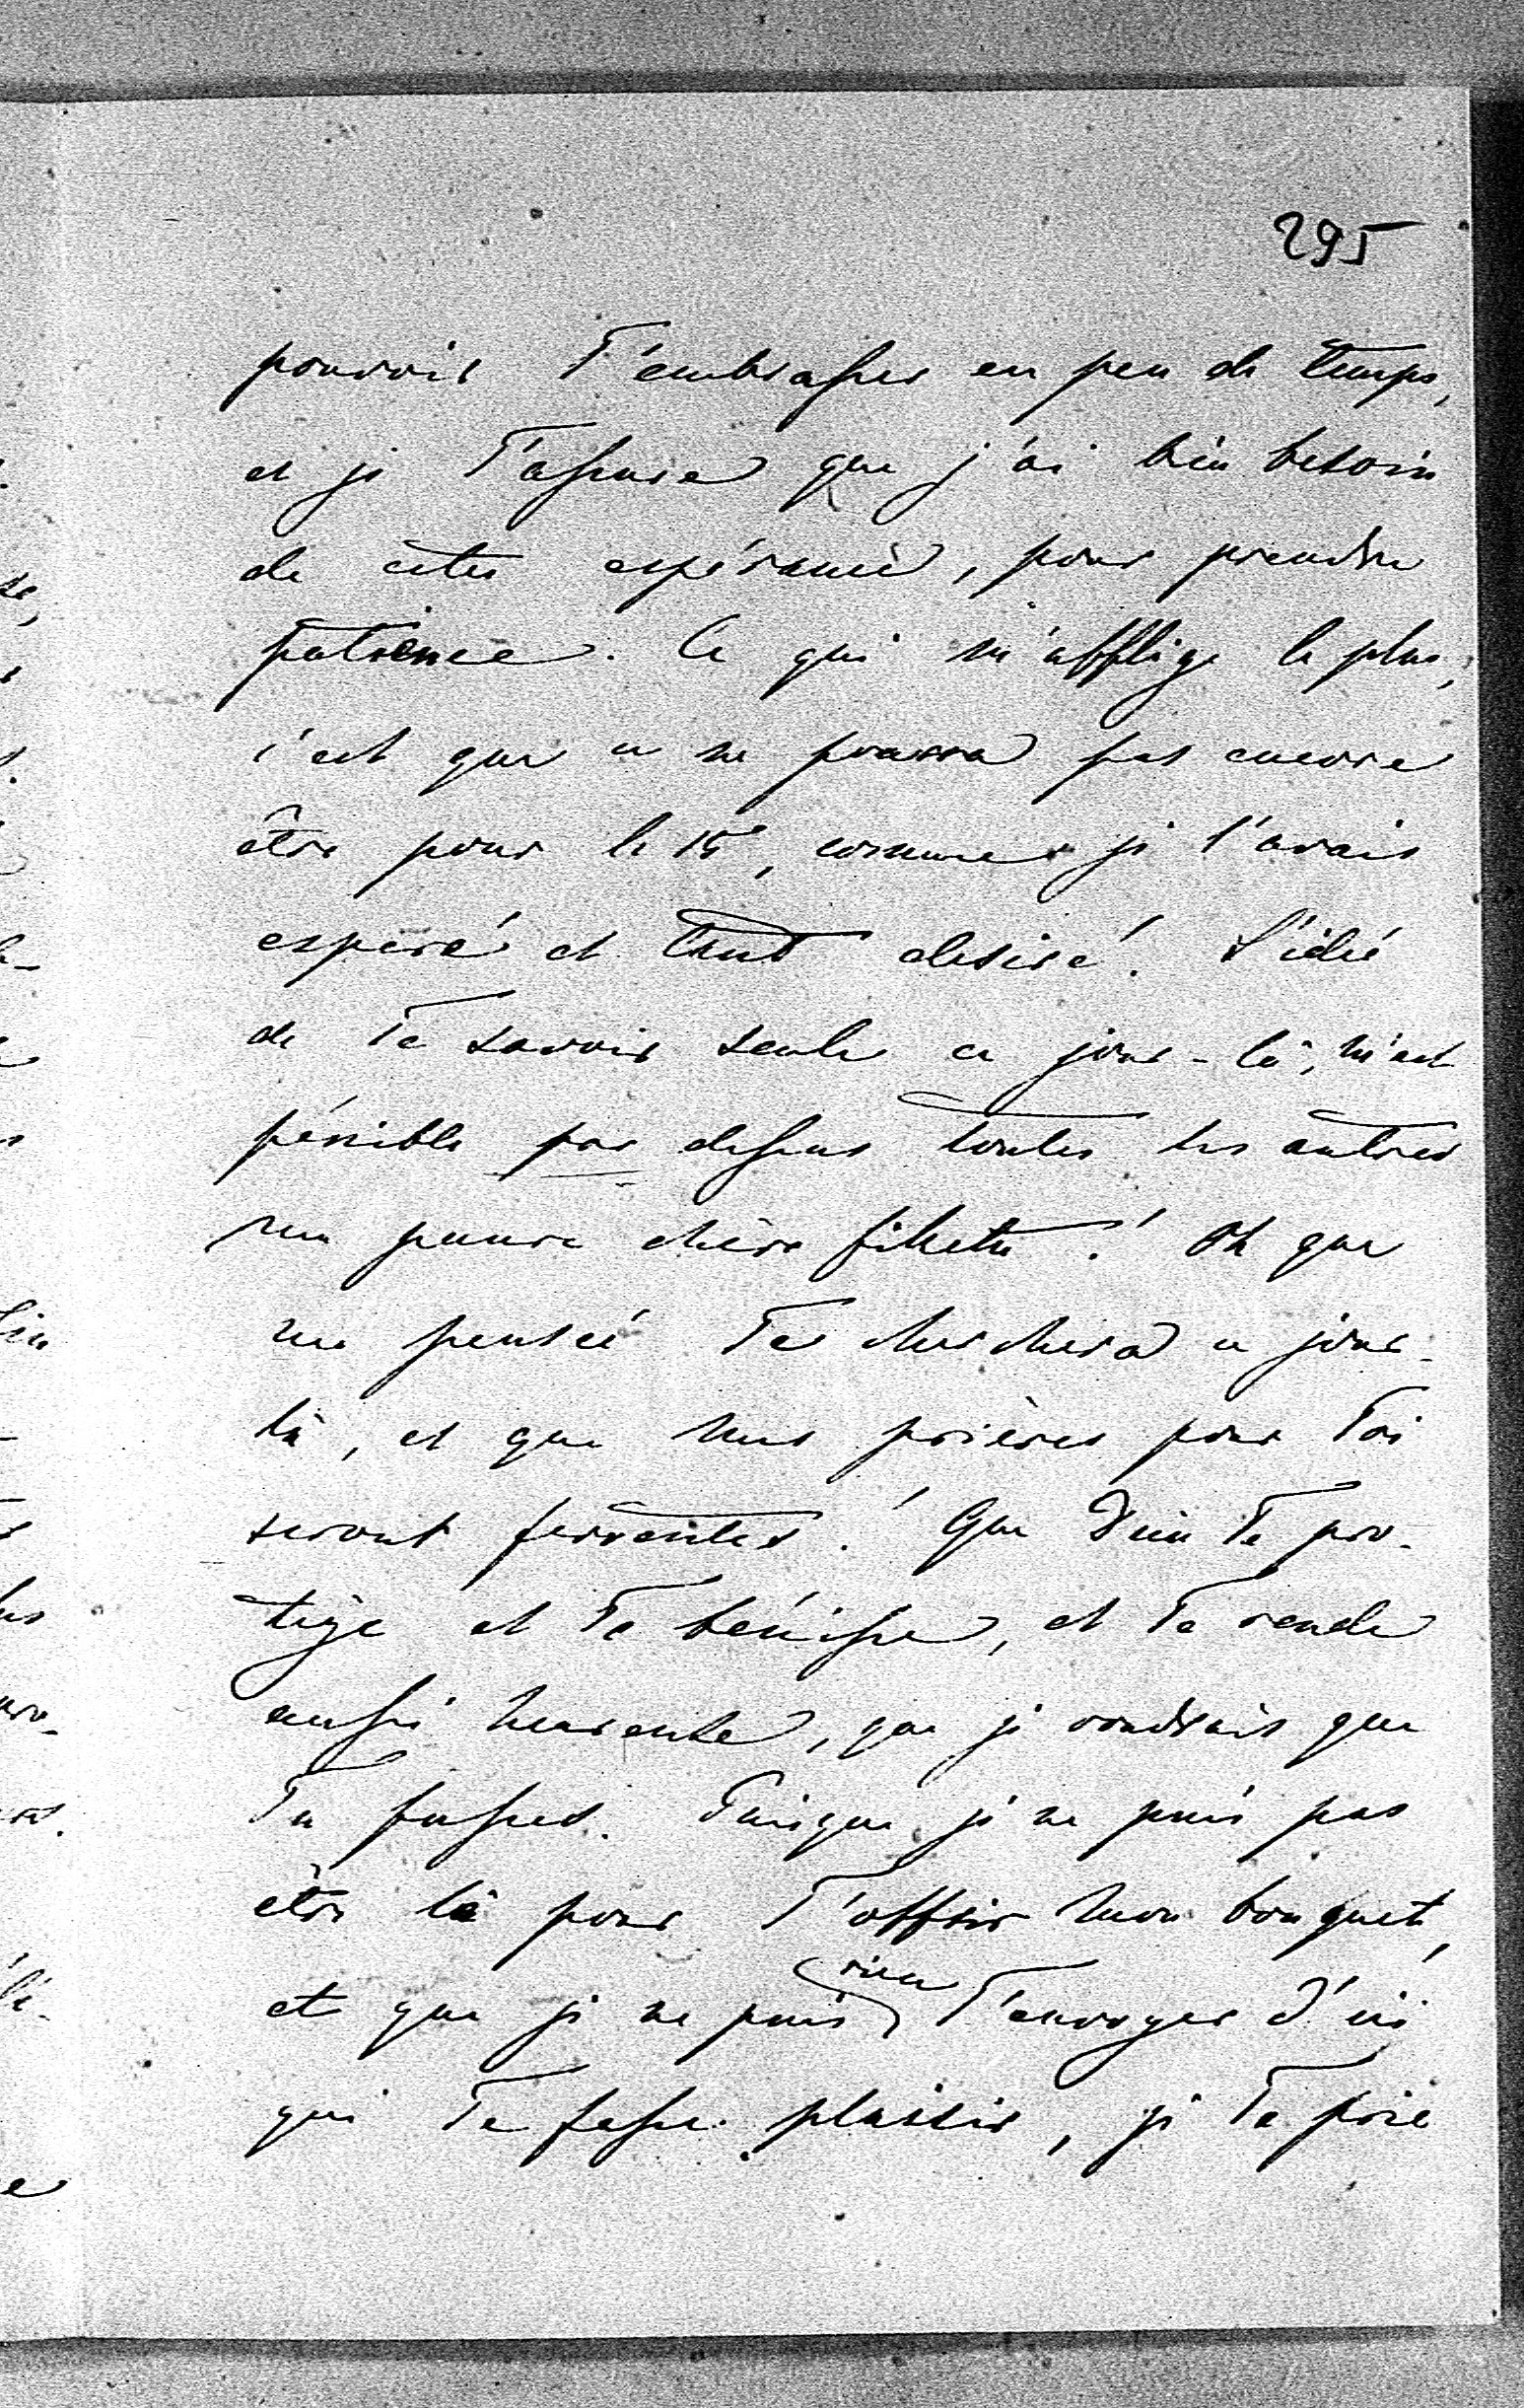 295
pouvoir T'embrasser en peu de temps,
et je T'assure que j'ai bien besoin
de cette espérance, pour prendre
patience. Ce qui m'afflige le plus,
c'est que ce ne pourra pas encore
être pour le 15, comme je l'avais
espéré et tant desiré. L'idée
de Te savoir seule ce jour-là, m'est
pénible par dessus toutes les autres
ma pauvre chère fillette! Oh que
ma pensée Te cherchera ce jour-
là, et que mes prières pour Toi
seront ferventes! Que Dieu Te pro-
tège et Te bénisse, et Te rende
aussi heureuse, que je voudrais que
Tu fusses. Puisque je ne puis pas
être là pour T'offrir mon bouquet,
et que je ne puis rien T'envoyer d'ici
qui Te fasse plaisir, je Te prie